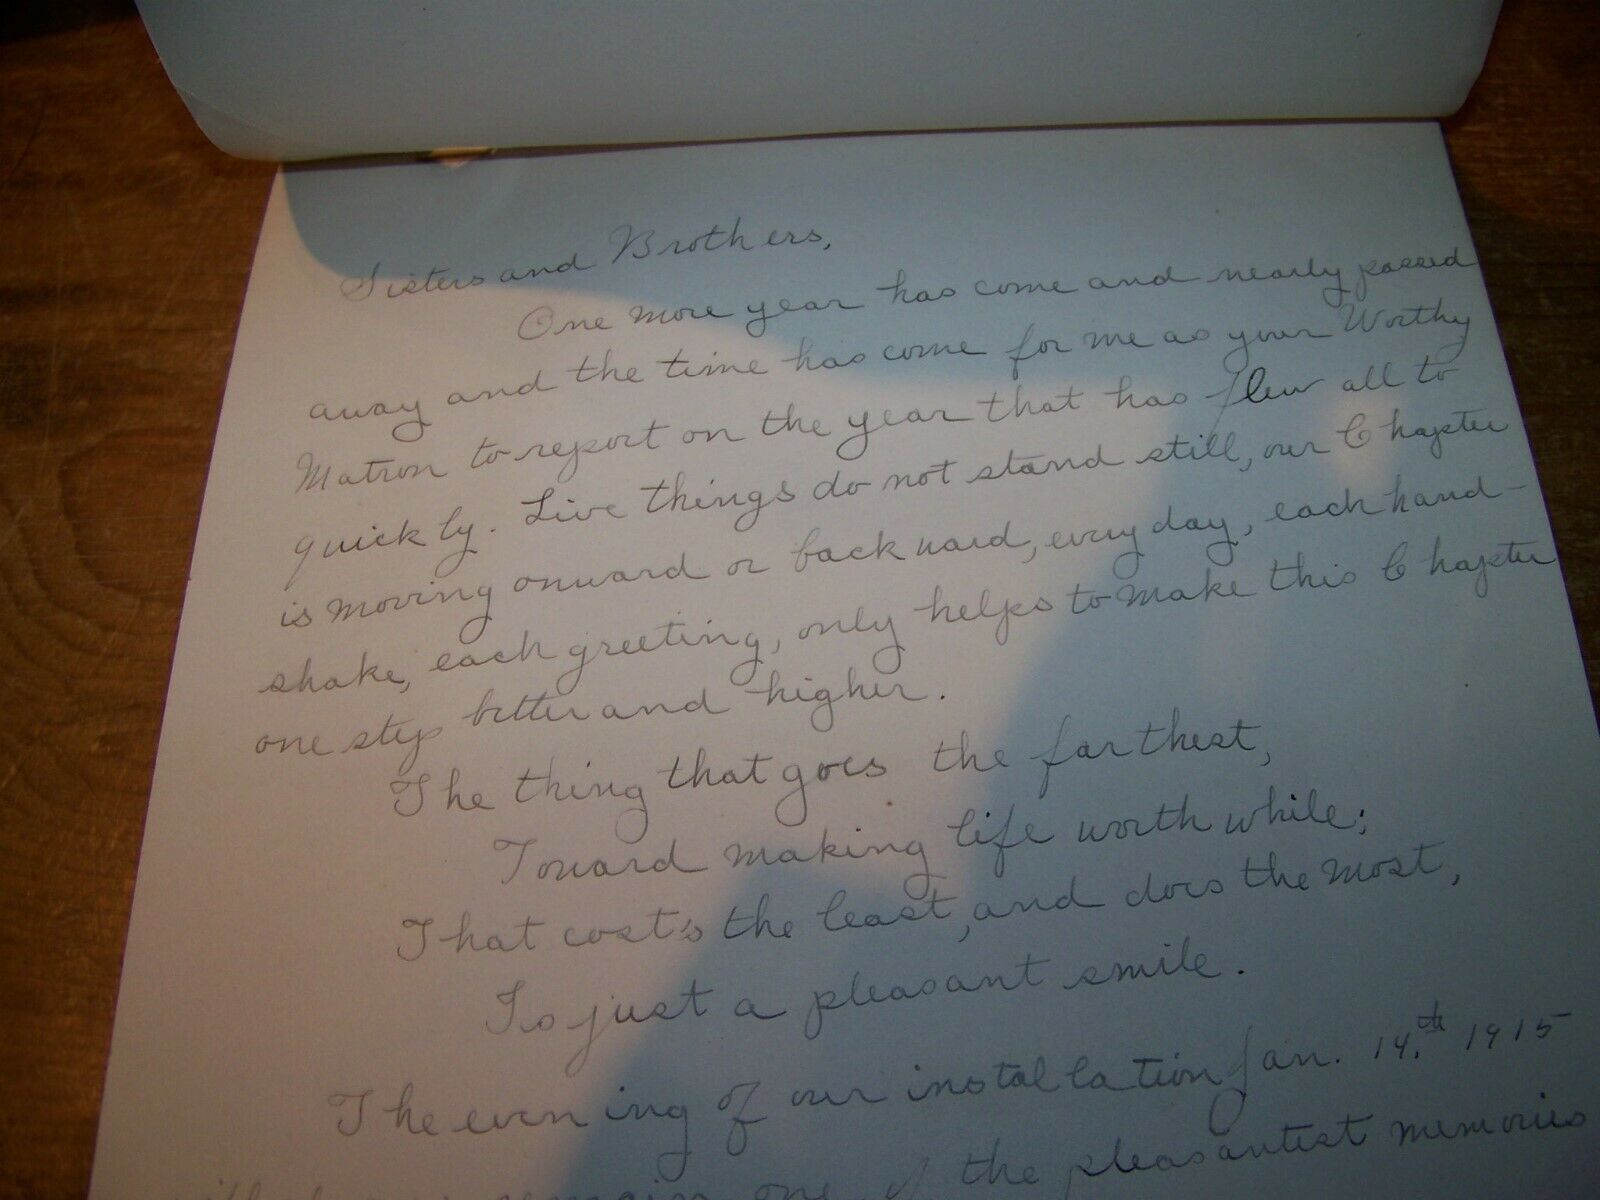 Sisters and Brothers,
One more year has come and nearly passed
away and the time has come for me as your Worthy
Matron to report on the year that has flew all to
quickly. Live things do not stand still, our Chapter
is moving onward or backward, every day, each hand-
shake, each greeting, only helps to make this Chapter
one step better and higher.
The thing that goes the farthest,
Toward making life worth while;
That costs the least, and does the most,
Is just a pleasant smile.
The evening of our installation Jan. 14.th 1915
remain one of the pleasantest memories